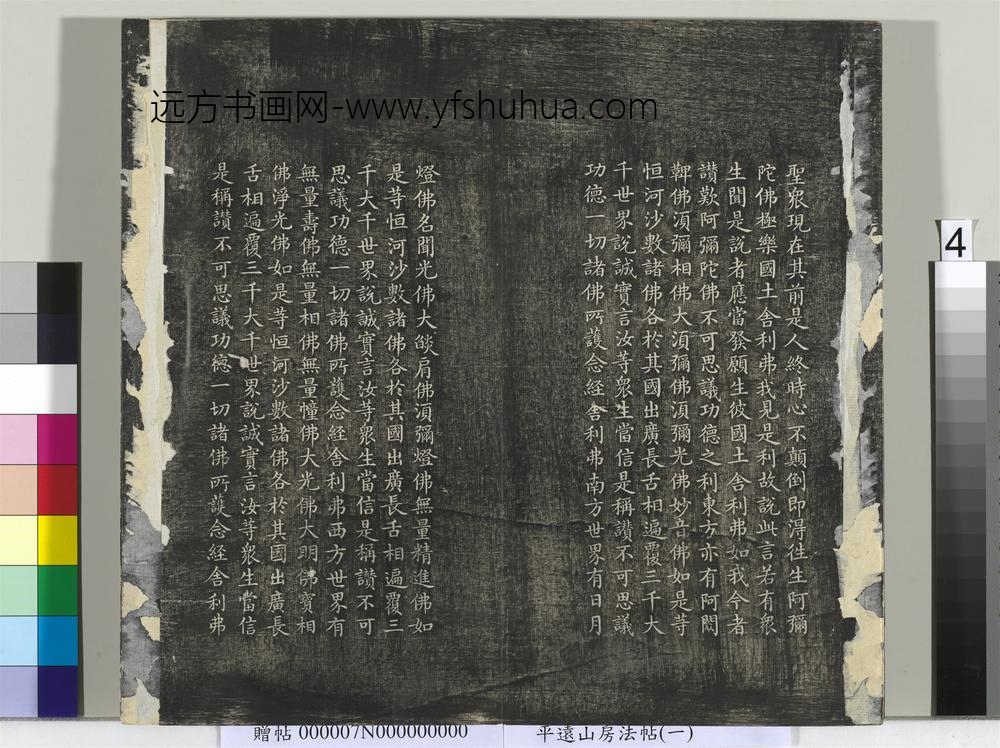 远方书画网-www.yfshuhua.com
聖衆現在其前是人終時心不顛倒即淂徃生阿彌
陀佛極樂國土舍利弗我見是利故說此言若有衆
生聞是說者應當發願生彼國土舍利弗如我今者
讃歎阿彌陀佛不可思議功德之利東方亦有阿閦
鞞佛湏彌相佛大湏彌佛湏彌光佛妙音佛如是等
恒河沙數諸佛各於其國出廣長舌相遍覆三千大
千世界說誠實言汝等衆生當信是稱讃不可思議
功德一切諸佛所護念經舍利弗南方世界有日月
燈佛名聞光佛大燄肩佛湏彌燈佛無量精進佛如
是等恒河沙數諸佛各於其國出廣長舌相遍覆三
千大千世界說誠實言汝等衆生當信是稱讃不可
思議功德一切諸佛所護念經舍利弗西方世界有
無量壽佛無量相佛無量幢佛大光佛大明佛寶相
佛淨光佛如是等恒河沙數諸佛各於其國出廣長
舌相遍覆三千大千世界說誠實言汝等衆生當信
是稱讃不可思議功德一切諸佛所護念經舍利弗
4
贈帖 000007N000000000
平遠山房法帖(一)